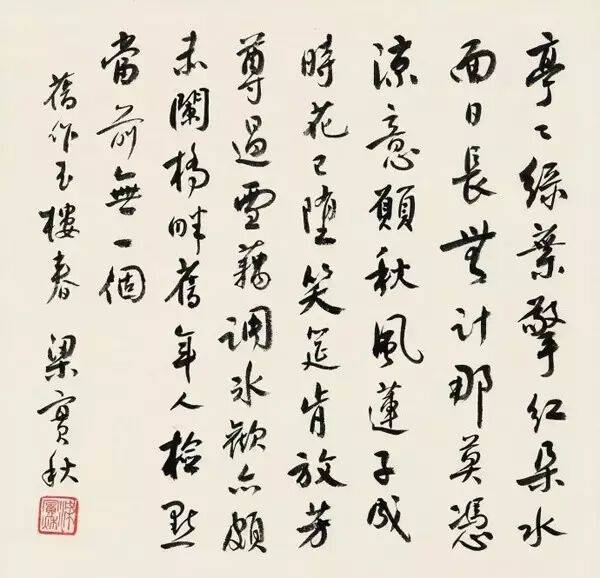 亭〻綠葉擎紅朵水
面日長無計那莫憑
涼意願秋風蓮子成
時花已墮笑筵肯放芳
尊過雪藕調冰歡亦頗
朱闌橋畔舊年人檢點
當前無一個
舊作玉樓春 梁實秋